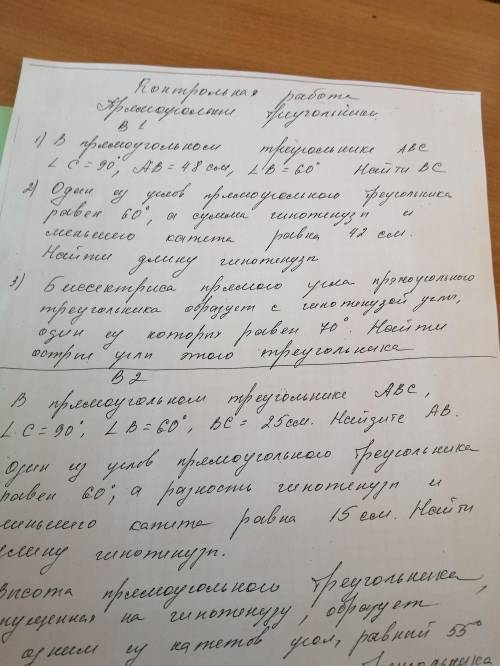 Контрольная работа
Прямоугольные треугольники.
В 1
1) В прямоугольном треугольнике АВС
∠C = 90°, AB = 48 см, ∠B = 60° Найти BC
2) Один из углов прямоугольного треугольника
равен 60°, а сумма гипотенузы и
меньшего катета равна 42 см.
Найти длину гипотенузы
3) Биссектриса прямого угла прямоугольного
треугольника образует с гипотенузой углы,
один из которых равен 70°. Найти
острые углы этого треугольника
В 2
В прямоугольном треугольнике АВС,
∠C = 90°, ∠B = 60°, BC = 25 см. Найдите АВ.
Один из углов прямоугольного треугольника
равен 60°, а разность гипотенузы и
меньшего катета равна 15 см. Найти
длину гипотенузы.
Высота прямоугольного треугольника,
пущенная на гипотенузу, образует
одним из катетов угол, равный 55°
треугольника